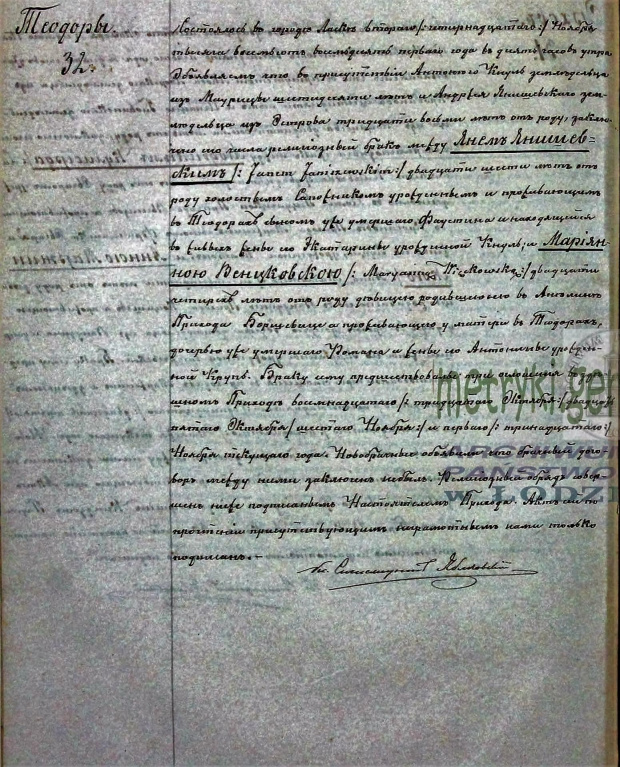 Теодоры.
32.
Состоялось въ городѣ Ласкѣ втораго /:четырнадцатаго:/ Ноября
тысяча восемьсотъ восемьдесятъ перваго года въ десять часовъ утра
Объявляемъ что въ присутствіи Антонаго Кнуль земледѣльца
изъ шестидесяти лѣтъ и Андрея Янишевскаго зем-
ледѣльца изъ Острова тридцати восьми лѣтъ отъ роду, заклю-
чено сего числа религіозный бракъ между Янемъ Янишев-
скимъ /:Janem Janiszewskim:/ двадцати шести лѣтъ отъ
роду холостымъ уроженнымъ и проживающимъ
въ Теодорахъ сыномъ уже умершаго Фаустина и находящейся
въ живыхъ жены его Екатарины урожденной Кнуль; и Маріян-
ною Венцковскою /:Maryanną Więckowską:/ двадцати
четырехъ лѣтъ отъ роду дѣвицею родившеюся въ
Прихода Борщевице а проживающею у матери въ Теодорахъ,
дочерью уже умершаго Романа и жены его Антонины урожден-
ной Крупъ. Браку сему предшествовали три оглашенія въ
Приходѣ восемнадцатаго /:тридцатаго Октября:/ двадцать
пятаго Октября /шестаго Ноября:/ и перваго /:тринадцатаго:/
Ноября текущаго года. Новобрачные объявили что брачный дого-
воръ между ними заключенъ небылъ. Религіозный обрядъ совер-
шенъ ниже подписаннымъ Настоятелемъ Прихода. Актъ сей по
прочтеніи присутствующимъ неграмотнымъ нами только
подписанъ.-
Кс.
metryki.gen
PAŃSTWO
w ŁODZI